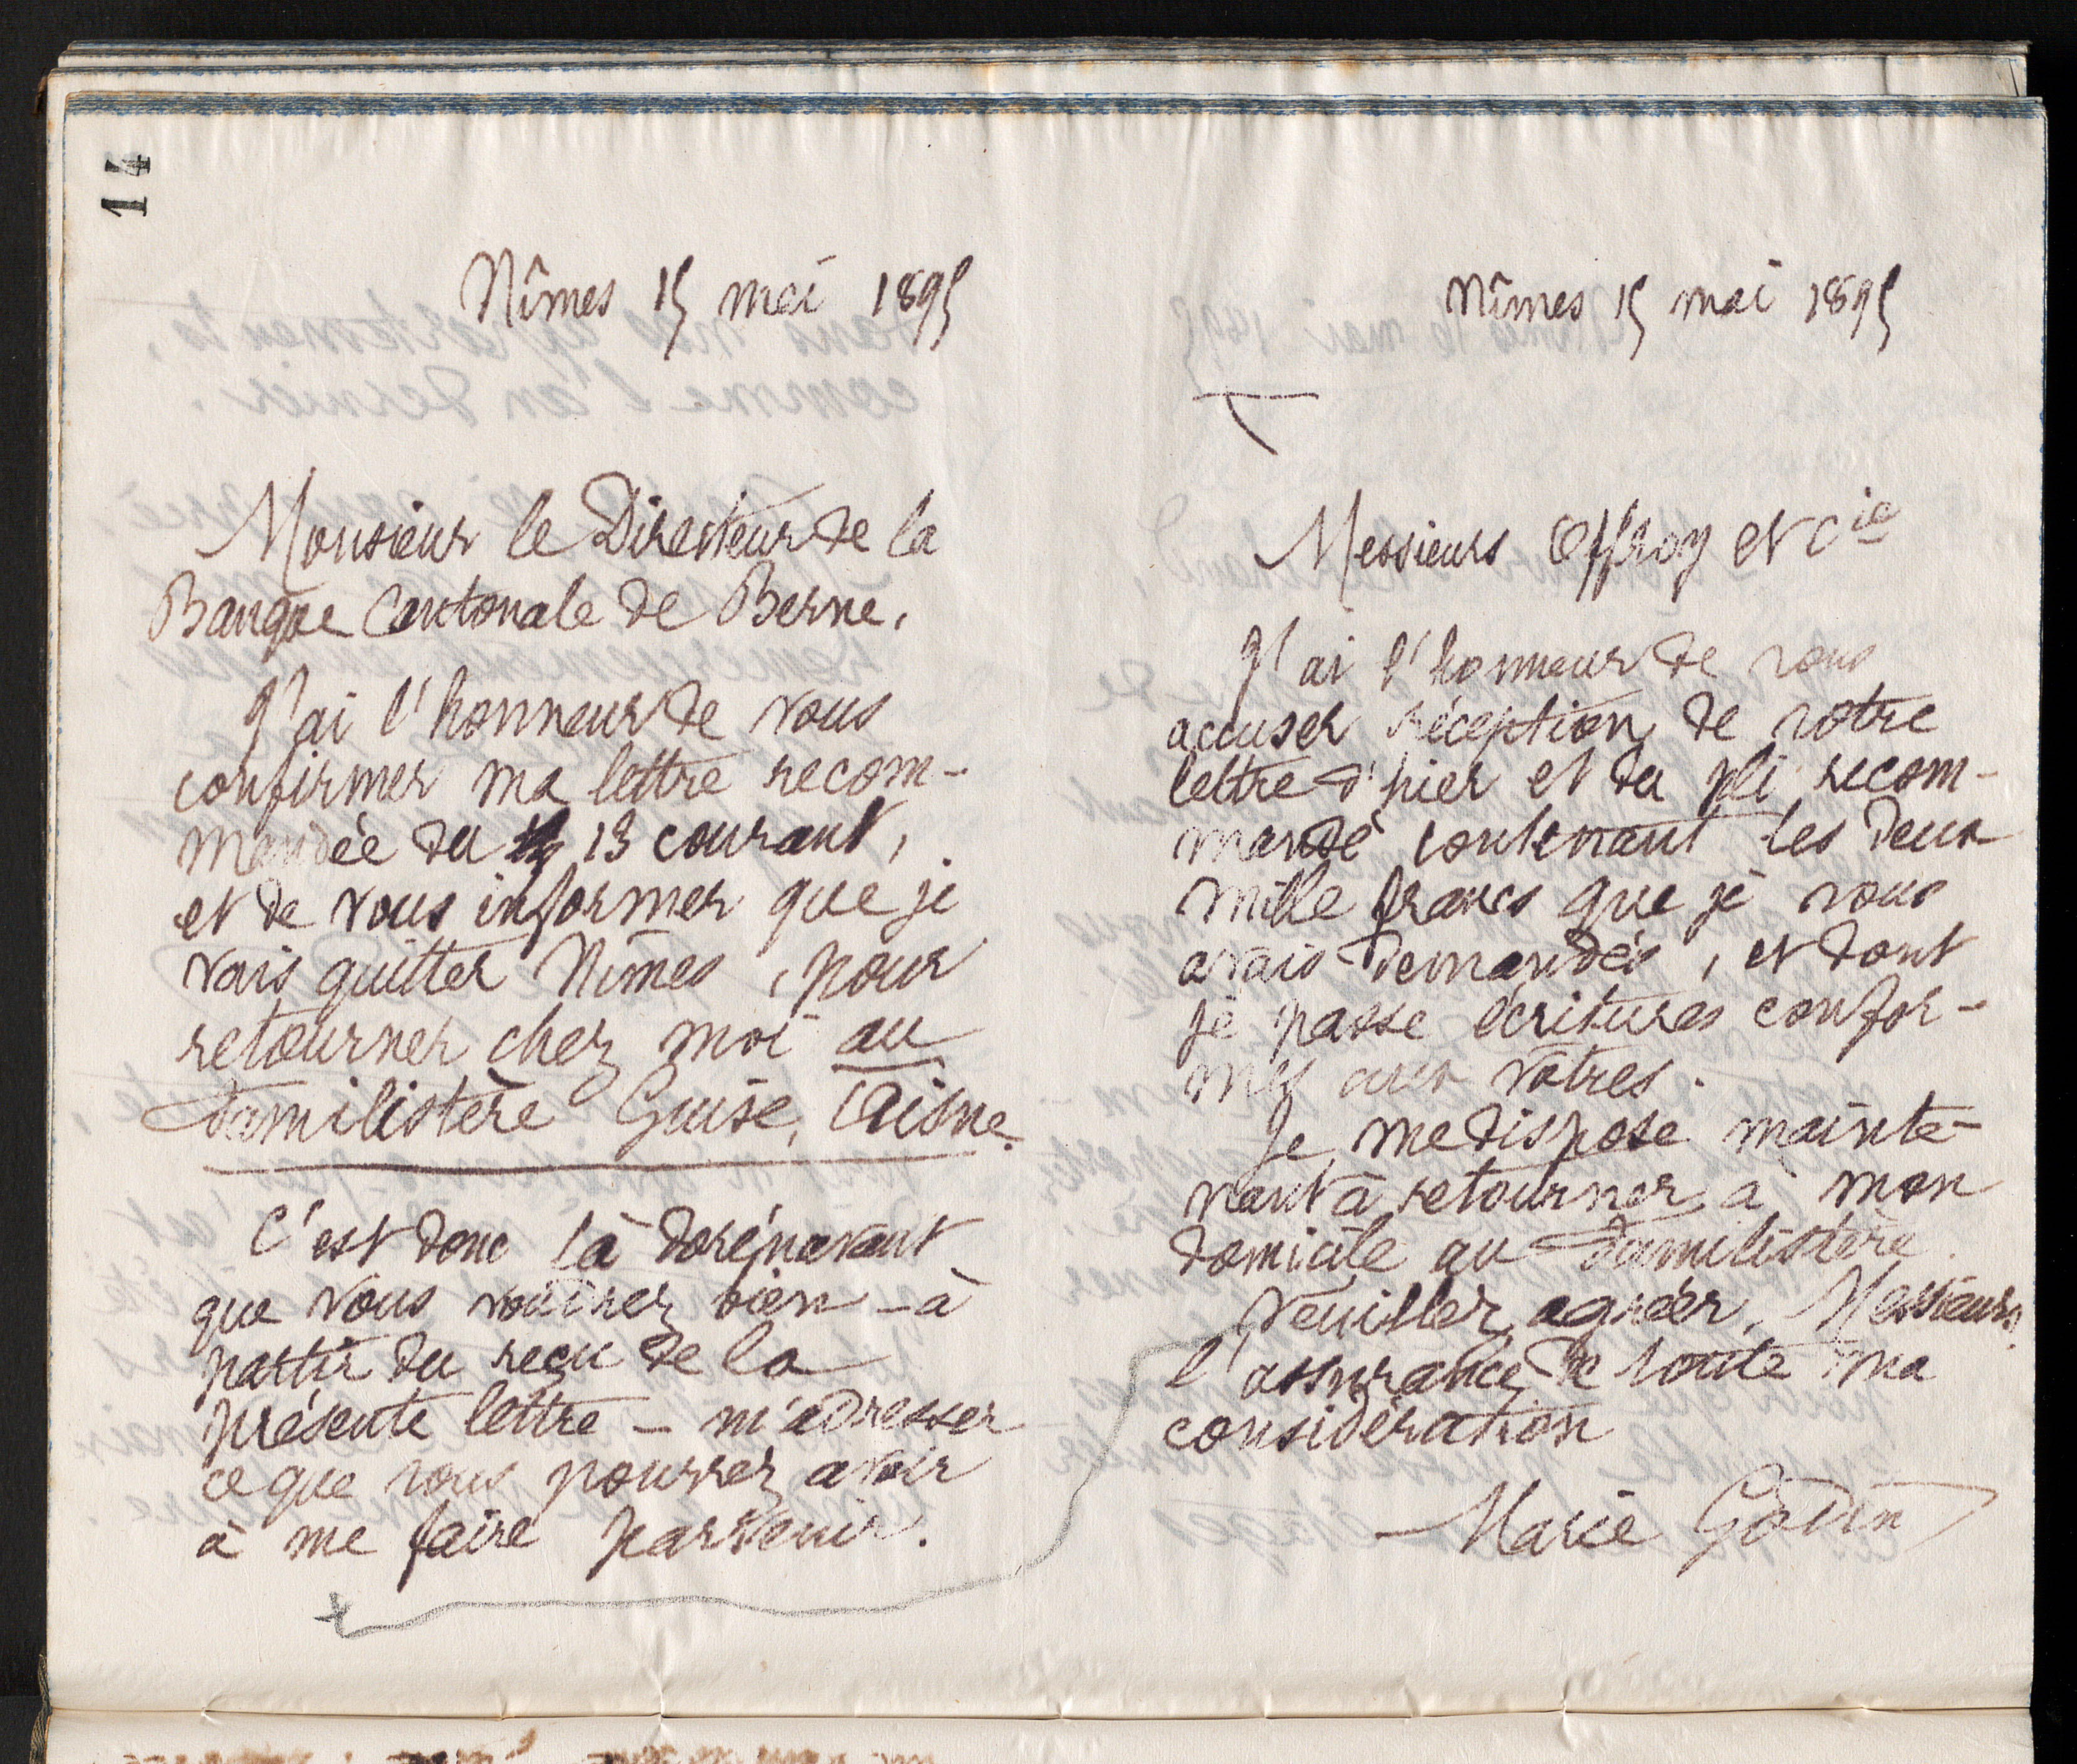 14
Nîmes 15 mai 1895
Monsieur le Directeur de la
Banque Cantonale de Berne.
J'ai l'honneur de vous
confirmer ma lettre recom-
mandée du 13 courant,
et de vous informer que je
vais quitter Nîmes, pour
retourner chez moi au
Familistère Guise, Aisne.
C'est donc là dorénavant
que vous voudrez bien - à
partir du reçu de la
présente lettre - m'adresser
ce que vous pourrez avoir
à me faire parvenir.
Nîmes 15 mai 1895
Messieurs Offroy et Cie
J'ai l'honneur de vous
accuser réception de votre
lettre d'hier et du pli recom-
mandé contenant les deux
mille francs que je vous
avais demandés, et dont
je passe écritures confor-
mes aux vôtres.
Je me dispose mainte-
nant à retourner à mon
domicile au Familistère.
Veuillez agréer, Messieurs,
l'assurance de toute ma
considération
Marie Godin